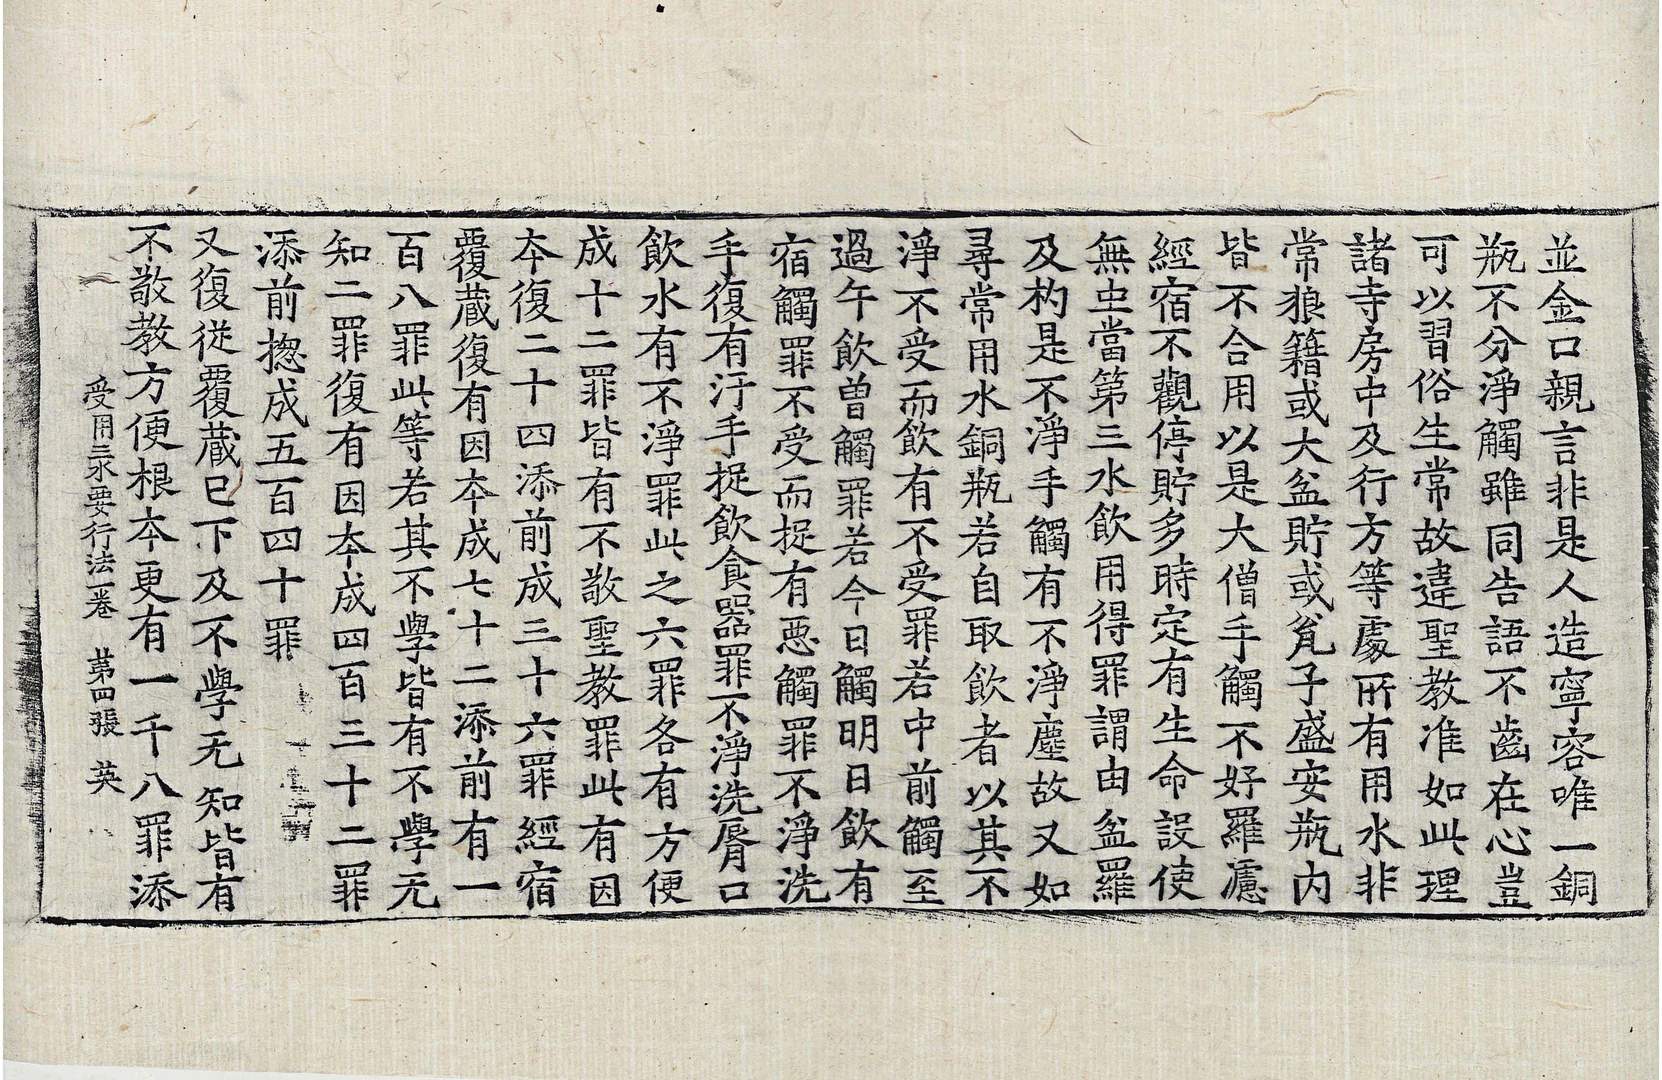 並金口親言非是人造寧容唯一銅
瓶不分淨觸雖同告語不齒在心豈
可以習俗生常故違聖教准如此理
諸寺房中及行方等處所有用水非
常狼籍或大盆貯或瓮子盛安瓶內
皆不合用以是大僧手觸不好羅濾
經宿不觀停貯多時定有生命設使
無虫當第三水飲用得罪謂由盆羅
及杓是不淨手觸有不淨塵故又如
尋常用水銅瓶若自取飲者以其不
淨不受而飲有不受罪若中前觸至
過午飲曾觸罪若今日觸明日飲有
宿觸罪不受而捉有惡觸罪不淨洗
手復有汙手捉飲食器罪不淨洗脣口
飲水有不淨罪此之六罪各有方便
成十二罪皆有不敬聖教罪此有因
夲復二十四添前成三十六罪經宿
覆藏復有因夲成七十二添前有一
百八罪此等若其不學皆有不學无
知二罪復有因夲成四百三十二罪
添前揔成五百四十罪
又復從覆藏巳下及不學无知皆有
不敬教方便根夲更有一千八罪添
受用三水要行法一卷　第四張　英